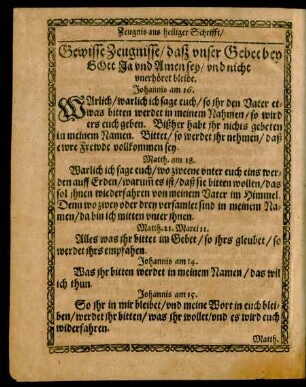 Zeugnis aus heiliger Schrifft/
Gewisse Zeugnisse/ daß vnser Gebet bey
GOtt Ja vnd Amen sey/ vnd nicht
vnerhöret bleibe.
Johannis am 16.
WArlich/ warlich ich sage euch/ so ihr den Vater et-
was bitten werdet in meinem Nahmen/ so wird
ers euch geben. Bißher habt ihr nichts gebeten
in meinem Namen. Bittet/ so werdet ihr nehmen/ daß
ewre Frewde vollkommen sey.
Matth. am 18.
Warlich ich sage euch/ wo zweene vnter euch eins wer-
den auff Erden/ warumb es ist/ daß sie bitten wollen/ das
sol ihnen wiederfahren von meinem Vater im Himmel.
Denn wo zwey oder drey versamlet sind in meinem Na-
men/ da bin ich mitten vnter ihnen.
Matth. 21. Marci 11.
Alles was ihr bittet im Gebet/ so ihrs gleubet/ so
werdet ihrs empfahen.
Johannis am 14.
Was ihr bitten werdet in meinem Namen/ das wil
ich thun.
Johannis am 15.
So ihr in mir bleibet/ vnd meine Wort in euch blei-
ben/ werdet ihr bitten/ was ihr wollet/ vnd es wird euch
widerfahren.
Matth.